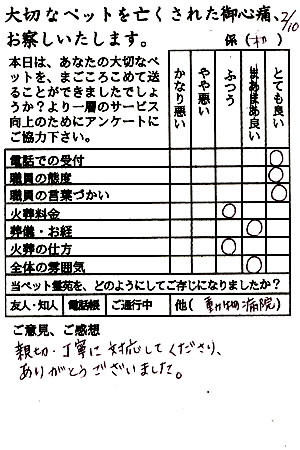 大切なペットを亡くされた御心痛、
お察しいたします。
2/10
係(
本日は、あなたの大切なペットを、まごころこめて送ることができましたでしょうか？より一層のサービス向上のためにアンケートにご協力下さい。
かなり悪い
やや悪い
ふつう
まあまあ良い
とても良い
電話での受付
職員の態度
職員の言葉づかい
火葬料金 ○
葬儀・お経 ○
火葬の仕方 ○
全体の雰囲気 ○
当ペット霊苑を、どのようにしてご存じになりましたか？
友人・知人 電話帳 ご通行中 他(動物病院)
ご意見、ご感想
親切・丁寧に対応してくださり、
ありがとうございました。